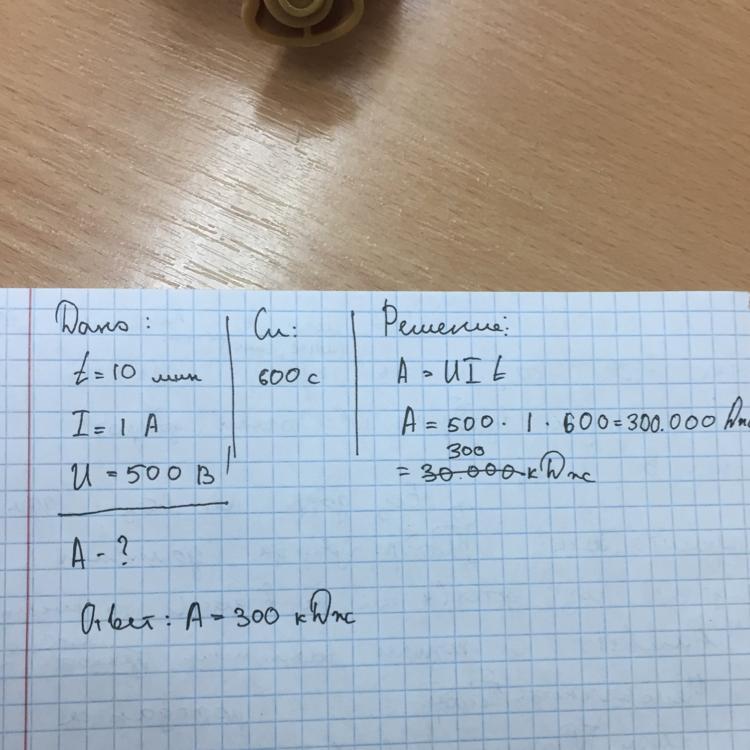 Дано:
t = 10 мин
I = 1 А
U = 500 В
А - ?
Си:
600 с
Решение:
А = UIt
А = 500 · 1 · 600 = 300.000 Дж
300
= 30.000 кДж
Ответ: А = 300 кДж